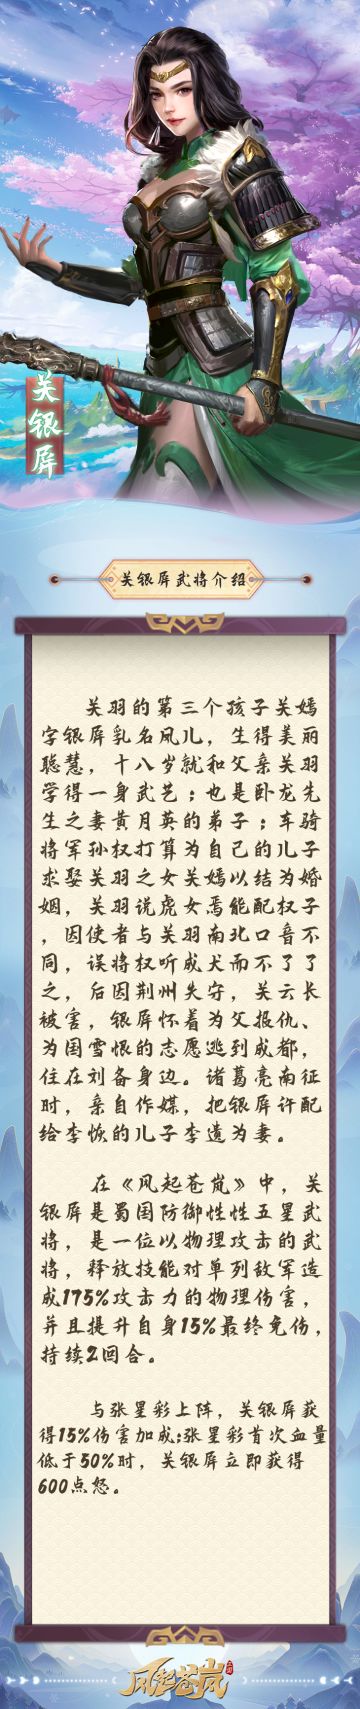 关银屏
关银屏武将介绍
关羽的第三个孩子关嫣
字银屏乳名凤儿，生得美丽
聪慧，十八岁就和父亲关羽
学得一身武艺；也是卧龙先
生之妻黄月英的弟子；车骑
将军孙权打算为自己的儿子
求娶关羽之女关嫣以结为婚
姻，关羽说虎女焉能配权子
，因使者与关羽南北口音不
同，误将权听成犬而不了了
之，后因荆州失守，关云长
被害，银屏怀着为父报仇、
为国雪恨的志愿逃到成都，
住在刘备身边。诸葛亮南征
时，亲自作媒，把银屏许配
给李恢的儿子李遗为妻。
在《风起苍岚》中，关
银屏是蜀国防御性性五星武
将，是一位以物理攻击的武
将，释放技能对单列敌军造
成175%攻击力的物理伤害，
并且提升自身15%最终免伤，
持续2回合。
与张星彩上阵，关银屏获
得15%伤害加成;张星彩首次血量
低于50%时，关银屏立即获得
600点怒。
风起苍岚